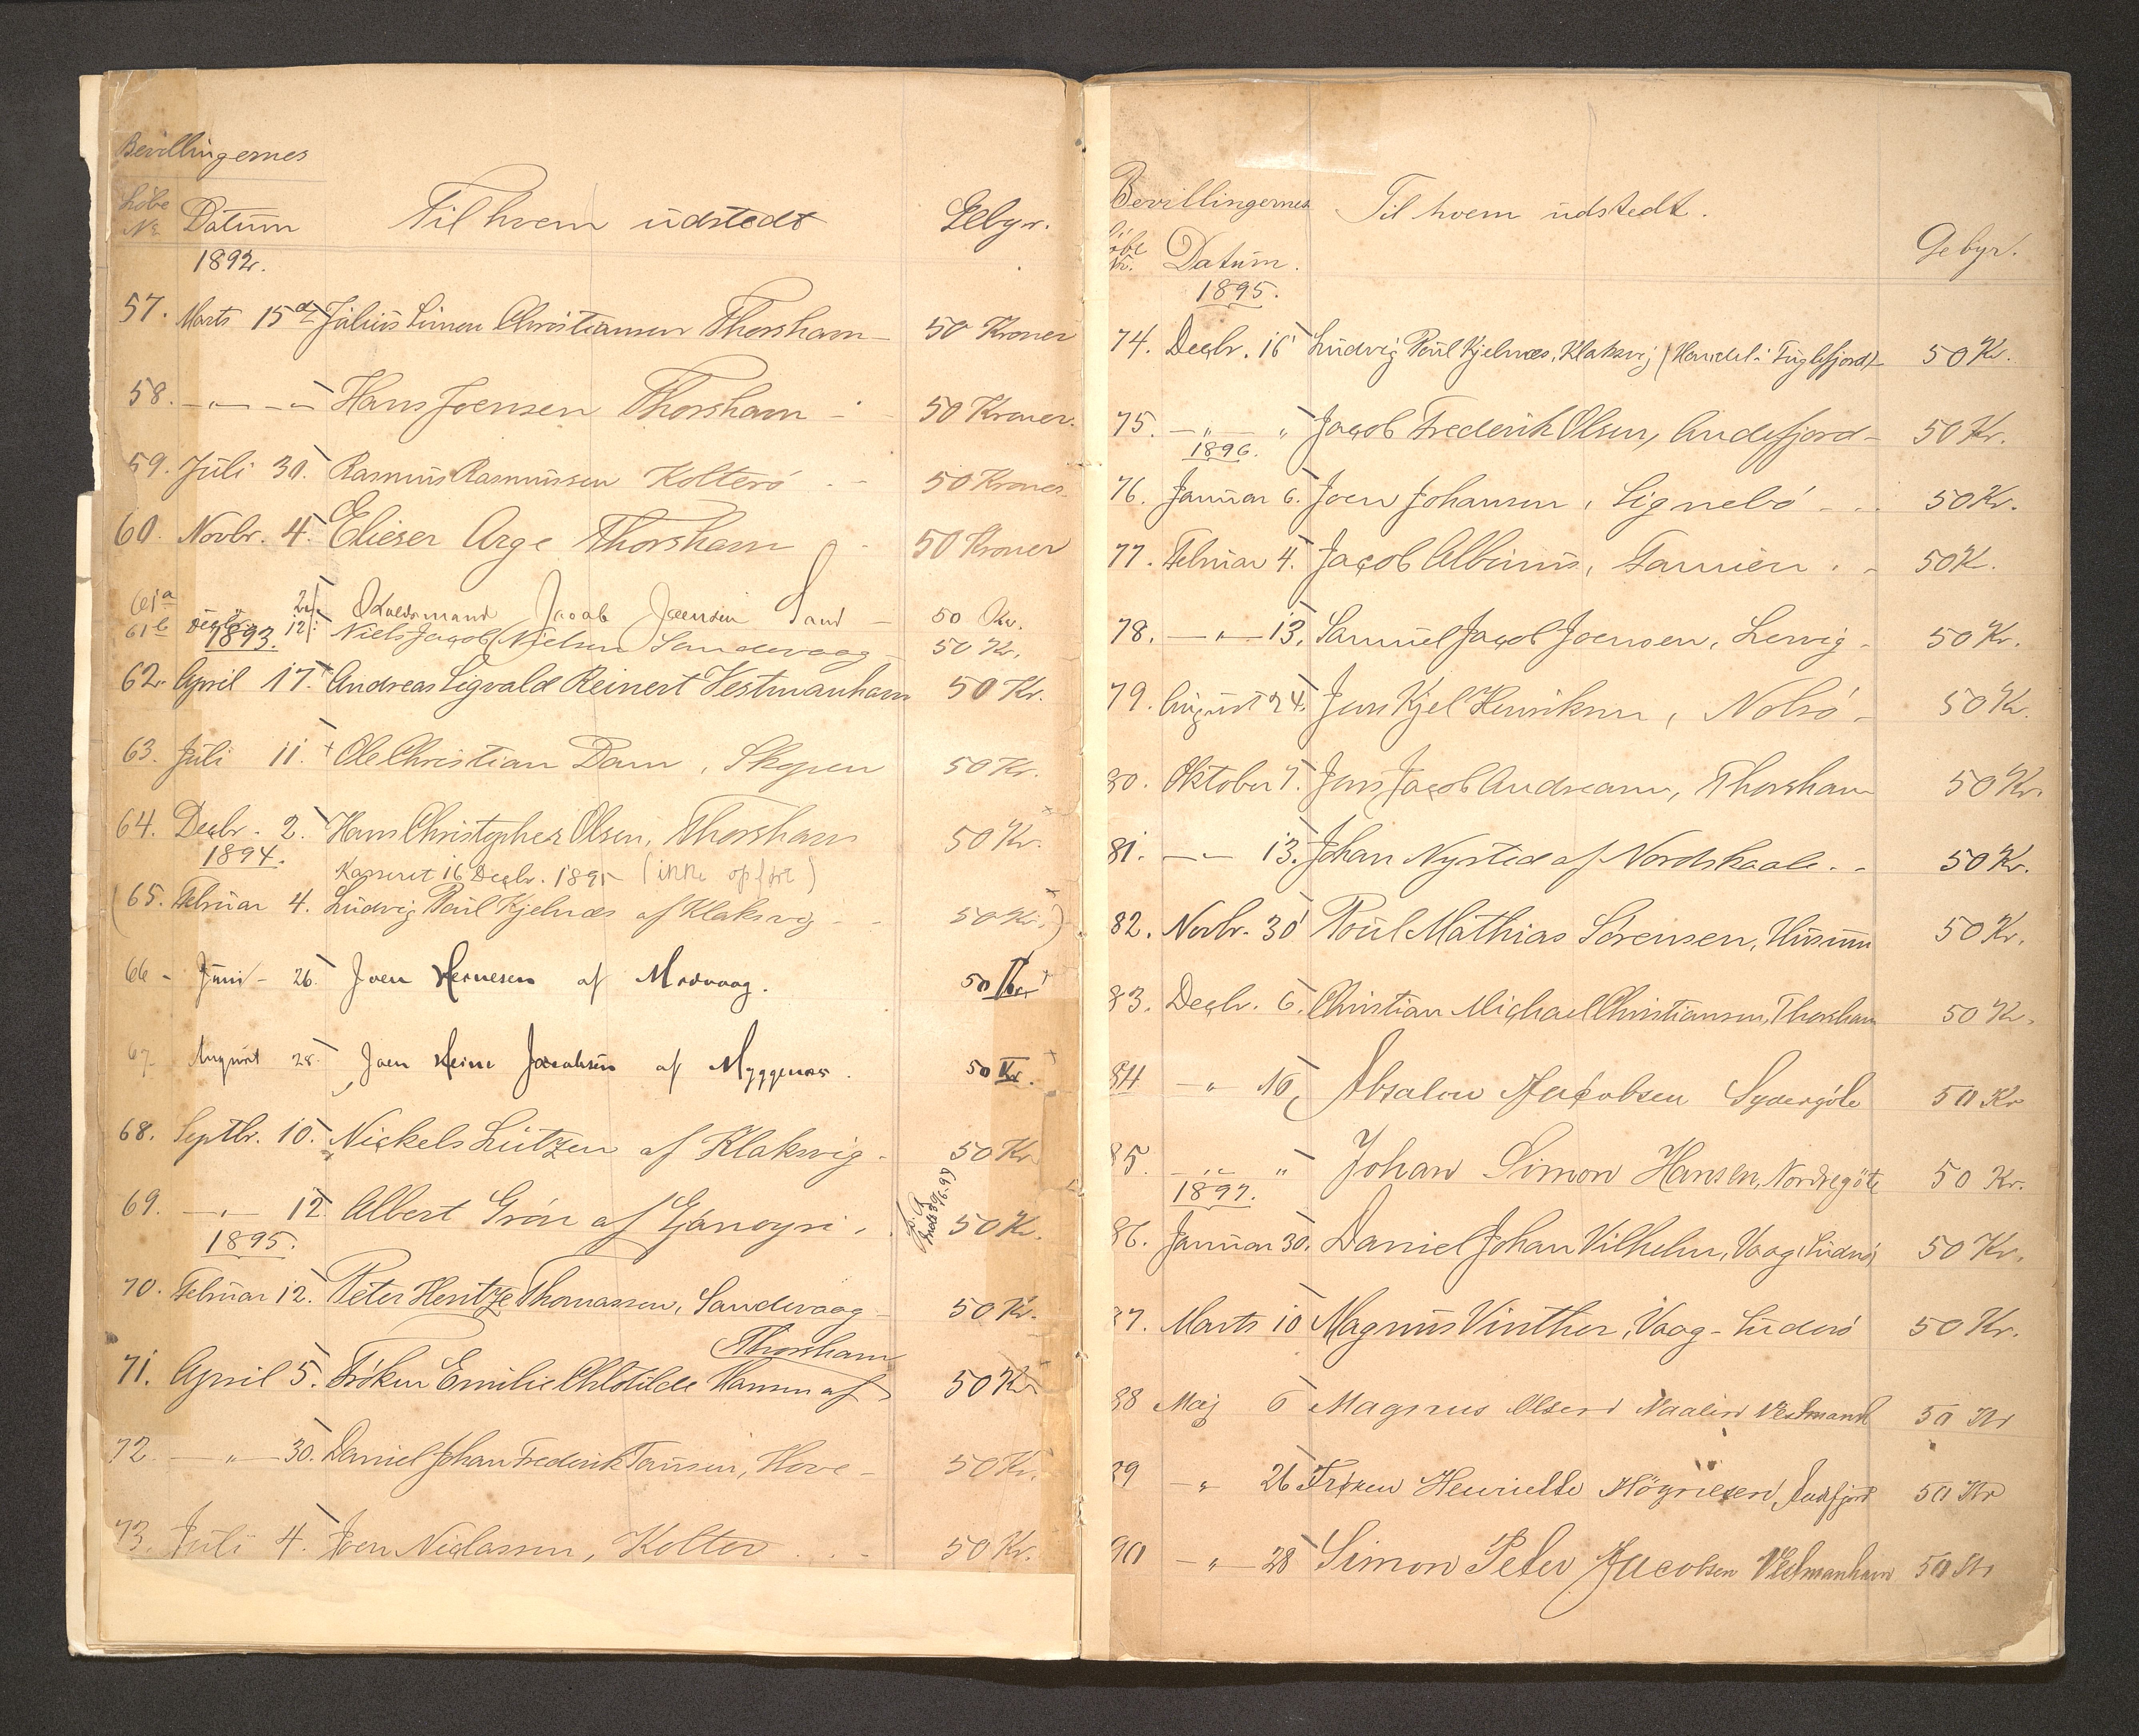 Bevillingernes
Löbe No Datum Til hvem udstedt Gebyr.
1892.
57. Marts 15d Julius Simon Christiansen Thorshavn 50 Kroner
58. — " — Hans Joensen Thorshavn - 50 Kroner.
59. Juli 30. Rasmus Rasmussen Kolterö - 50 Kroner
60. Novbr. 4. Elieser Arge Thorshavn 50 Kroner
61a 2/ Jacob Joensen Sand - 50 Kr.
61b Decbr. 12/ Niels Jacob Nielsen Sandevaag - 50 Kr.
1893.
62. April 17. Andreas Sigvald Reinert Vestmanhavn 50 Kr.
63. Juli 11. Ole Christian Dam, Skopen 50 Kr.
64. Decbr. 2. Hans Christopher Olsen, Thorshavn 50 Kr.
1894.
Kasseret 16 Decbr. 1895 (ikke opfört)
(65. Februar 4. Ludvig Poul Kjelnæs af Klaksvig - 50 Kr.)
66 - Juni - 26. Joen af . 50 Kr.
67. August 28. Joen Heine Jacobsen af Myggenæs. 50 Kr.
68. Septbr. 10. Nickels Lützen af Klaksvig - 50 Kr.
69. — " — 12. Albert Grön af 50 Kr.
1895.
70. Februar 12. Peter Hentze Thomassen, Sandevaag - 50 Kr.
Thorshavn
71. April 5. Fröken Emilie Chlotilde Hansen af 50 Kr.
72. — " — 30. Daniel Johan Frederik Tausen, Hove - 50 Kr.
73. Juli 4. Joen Niclassen, Kolter - 50 Kr.
Bevillingernes Til hvem udstedt.
Löbe Nr. Datum. Gebyr.
1895.
74. Decbr. 16 Ludvig Poul Kjelnæs, Klaksvij (Handel i Fuglefjord) 50 Kr.
75. — " — " Jacob Frederik Olsen, Andefjord - 50 Kr.
1896.
76. Januar 6. Joen Johansen, Signebö - 50 Kr.
77. Februar 4. Jacob Albinus, Famien. - 50 K.
78. — " — 13. Samuel Jacob Joensen, Lervig - 50 Kr.
79. August 24. Jens Kjel Henriksen, Nolsö - 50 Kr.
80. Oktober 7. Jens Jacob Andreasen, Thorshavn 50 Kr.
81. — " — 13. Johan Nysted af Nordskaale. - 50 Kr.
82. Novbr. 30 Poul Mathias Sörensen, Husum 50 Kr.
83. Decbr. 6. Christian Michael Christiansen, Thorshavn 50 Kr.
84 — " — 10 Absalon Jacobsen Sydergöte 50 Kr
85. — " — " Johan Simon Hansen, Nordregöte 50 Kr.
1897.
86. Januar 30. Daniel Johan Vilhelm, Vaag, Suderö 50 Kr.
87. Marts 10 Magnus Vinther, Vaag - Suderö 50 Kr.
88 Maj 6 Magnus Olsen Vestmanh 50 Kr
89 — " — 26 Fröken Henriette Högnesen, Andefjord 50 Kr
90 — " — 28 Simon Peter Jacobsen Vestmanhavn 50 Kr